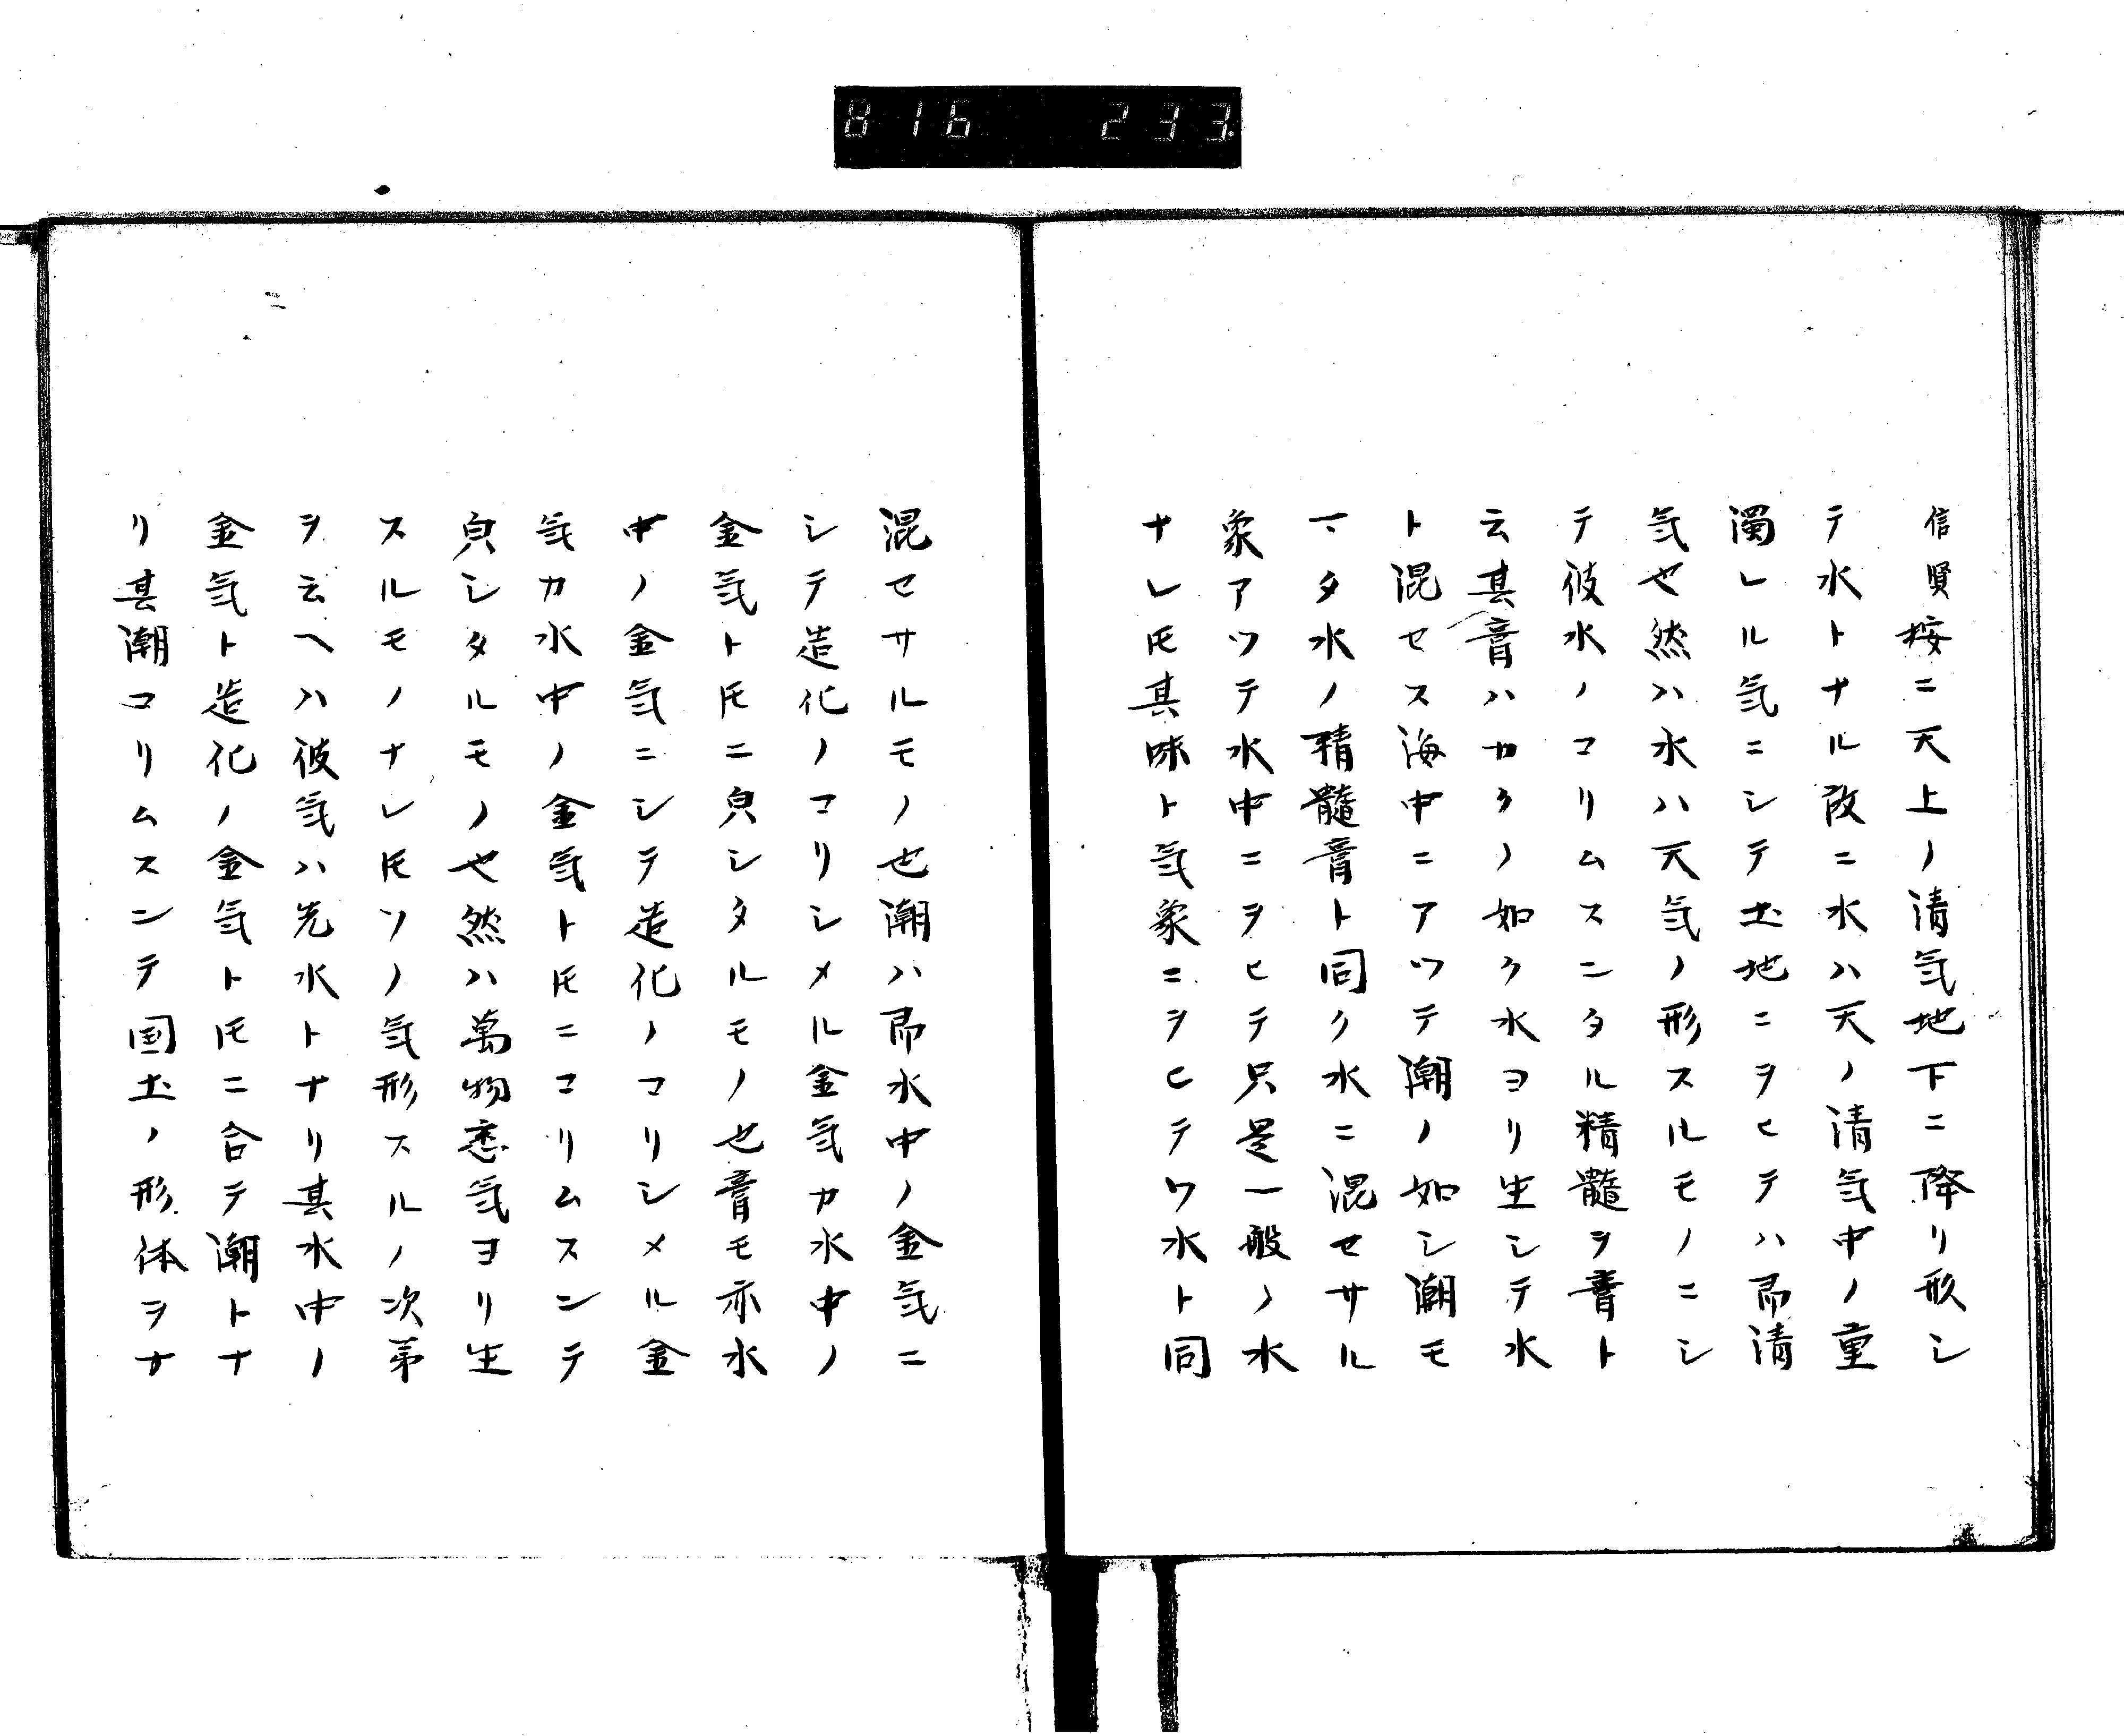 816 233
信賢按ニ天上ノ清気地下ニ降リ形シ
テ水トナル故ニ水ハ天ノ清気中ノ重
濁レル気ニシテ土地ニヲヒテハ即清
気也然ハ水ハ天気ノ形スルモノニシ
テ彼水ノコリムスンタル精髄ヲ膏ト
云其膏ハカクノ如ク水ヨリ生シテ水
ト混セス海中ニアツテ潮ノ如シ潮モ
マタ水ノ精髄膏ト同ク水ニ混セサル
象アツテ水中ニヲヒテ只是一般ノ水
ナレ𪜈其味ト気象ニヲヒテワ水ト同
混セサルモノ也潮ハ即水中ノ金気ニ
シテ造化ノコリシメル金気カ水中ノ
金気ト𪜈ニ見シタルモノ也膏モ亦水
中ノ金気ニシテ造化ノコリシメル金
気カ水中ノ金気ト𪜈ニコリムスンテ
見シタルモノ也然ハ萬物悉気ヨリ生
スルモノナレ𪜈ソノ気形スルノ次第
ヲ云ヘハ彼気ハ先水トナリ其水中ノ
金気ト造化ノ金気ト𪜈ニ合テ潮トナ
リ其潮コリムスンテ国土ノ形体ヲナ